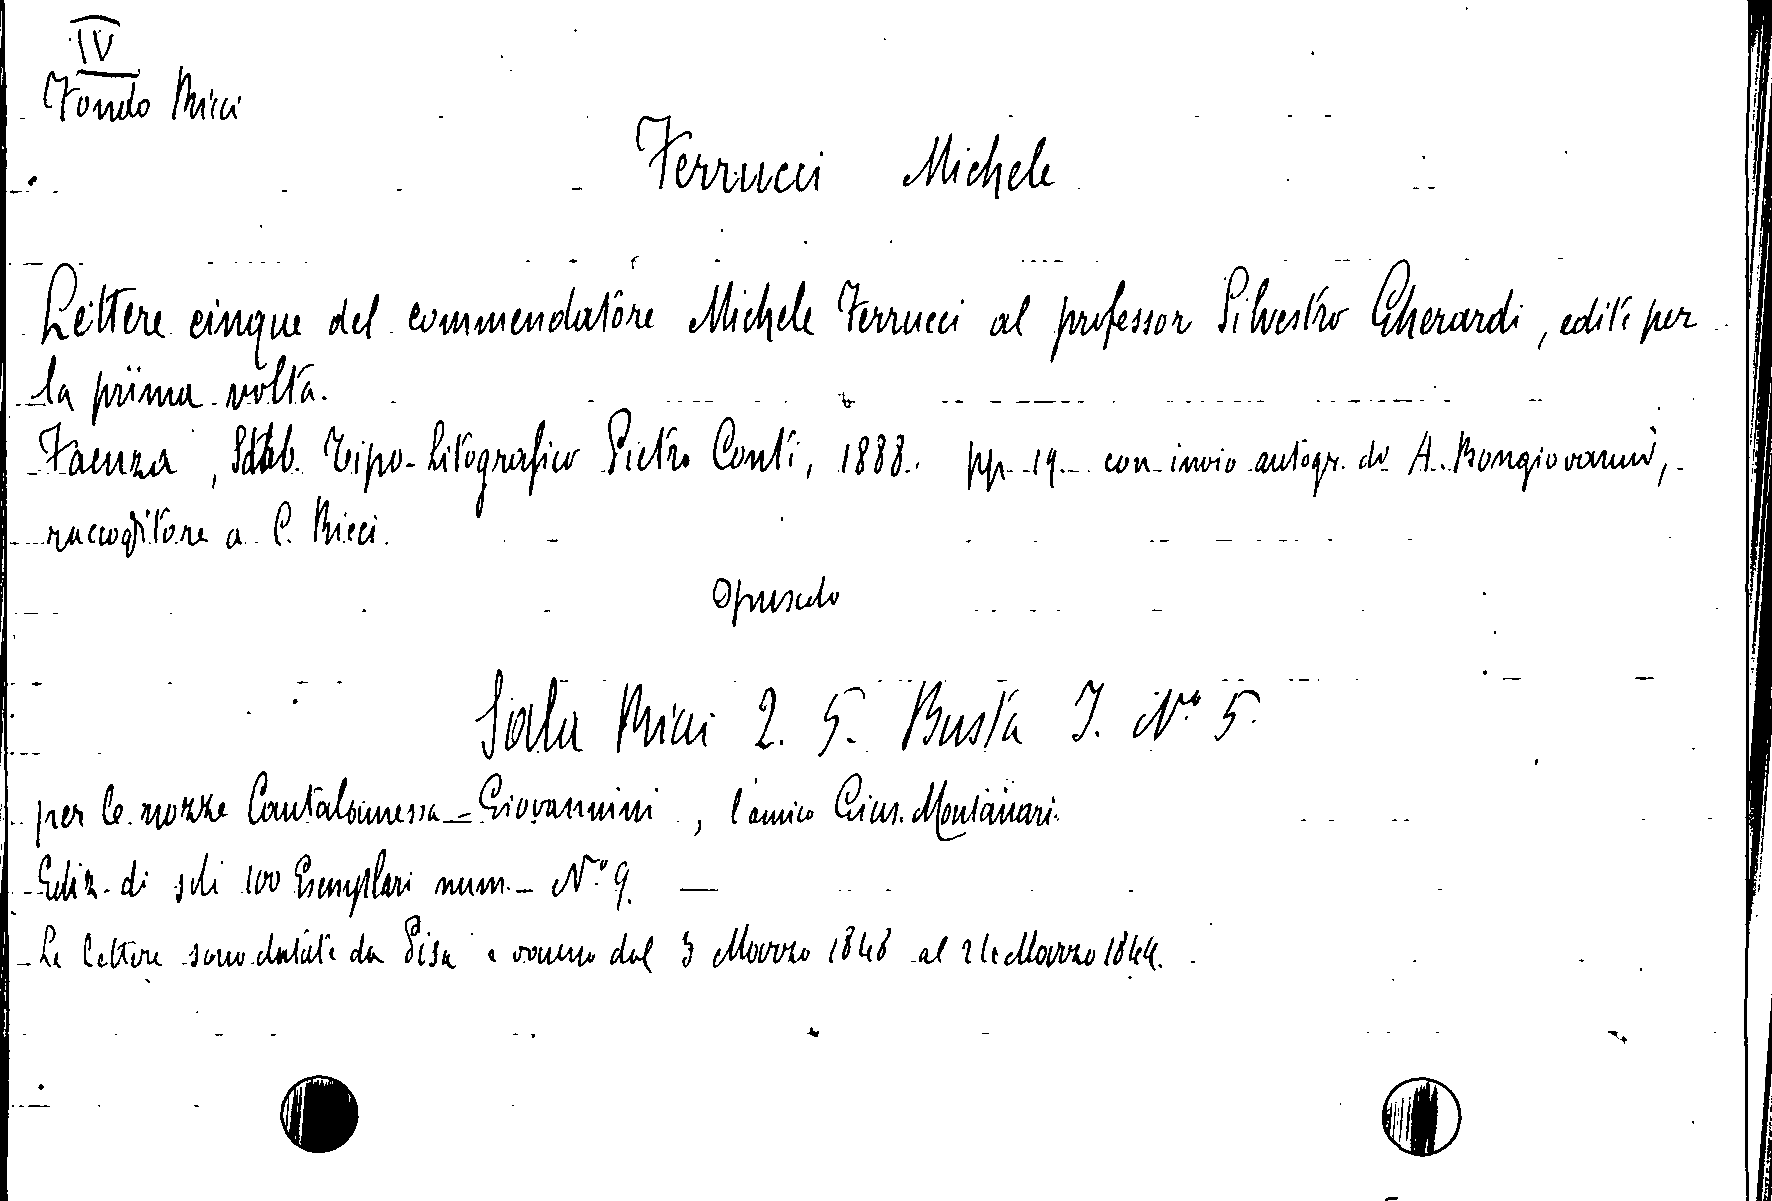 IV
Fondo Ricci
Ferrucci Michele
Lettere cinque del commendatore Michele Ferrucci al professor Silvestro Gherardi, edite per
la prima volta.
Faenza, Stab. Tipo-Litografico Pietro Conti, 1888. pp. 19 con invio autogr. di A. Bongiovanni,
raccoglitore a C. Ricci.
Opuscolo
Sala Ricci 2. 5. Busta I. N.° 5.
per le nozze Cantalamessa - Giovannini, l'amico Gius. Montanari.
Ediz. di soli 100 Esemplari num. - N.° 9. —
Le lettere sono datate da Pisa e vanno dal 3 Marzo al Marzo 1844.